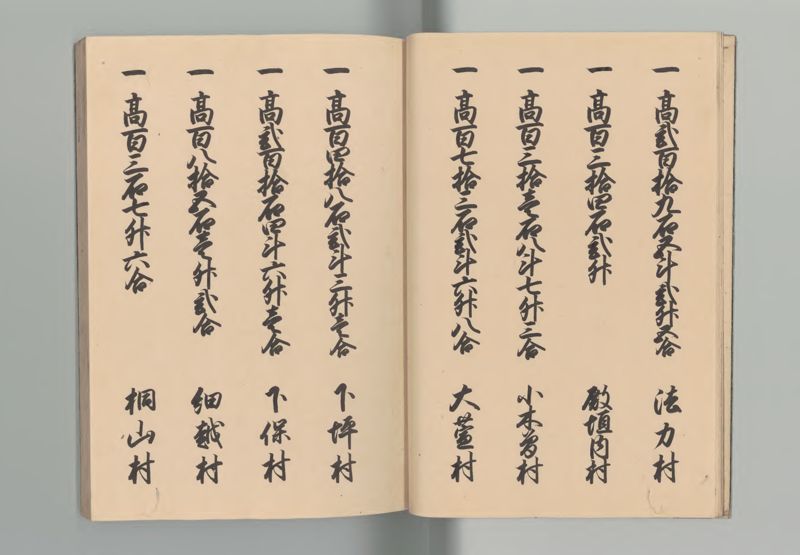 一 高弐百拾九石五斗弐升五合 法力村
一 高百三拾四石弐升 殿垣内村
一 高百三拾壱石八斗七升三合 小木曽村
一 高百七拾三石弐斗六升八合 大萱村
一 高百四拾八石弐斗三升壱合 下坪村
一 高弐百拾石四斗六升壱合 下保村
一 高百八拾五石壱升弐合 細越村
一 高百三石七升六合 桐山村